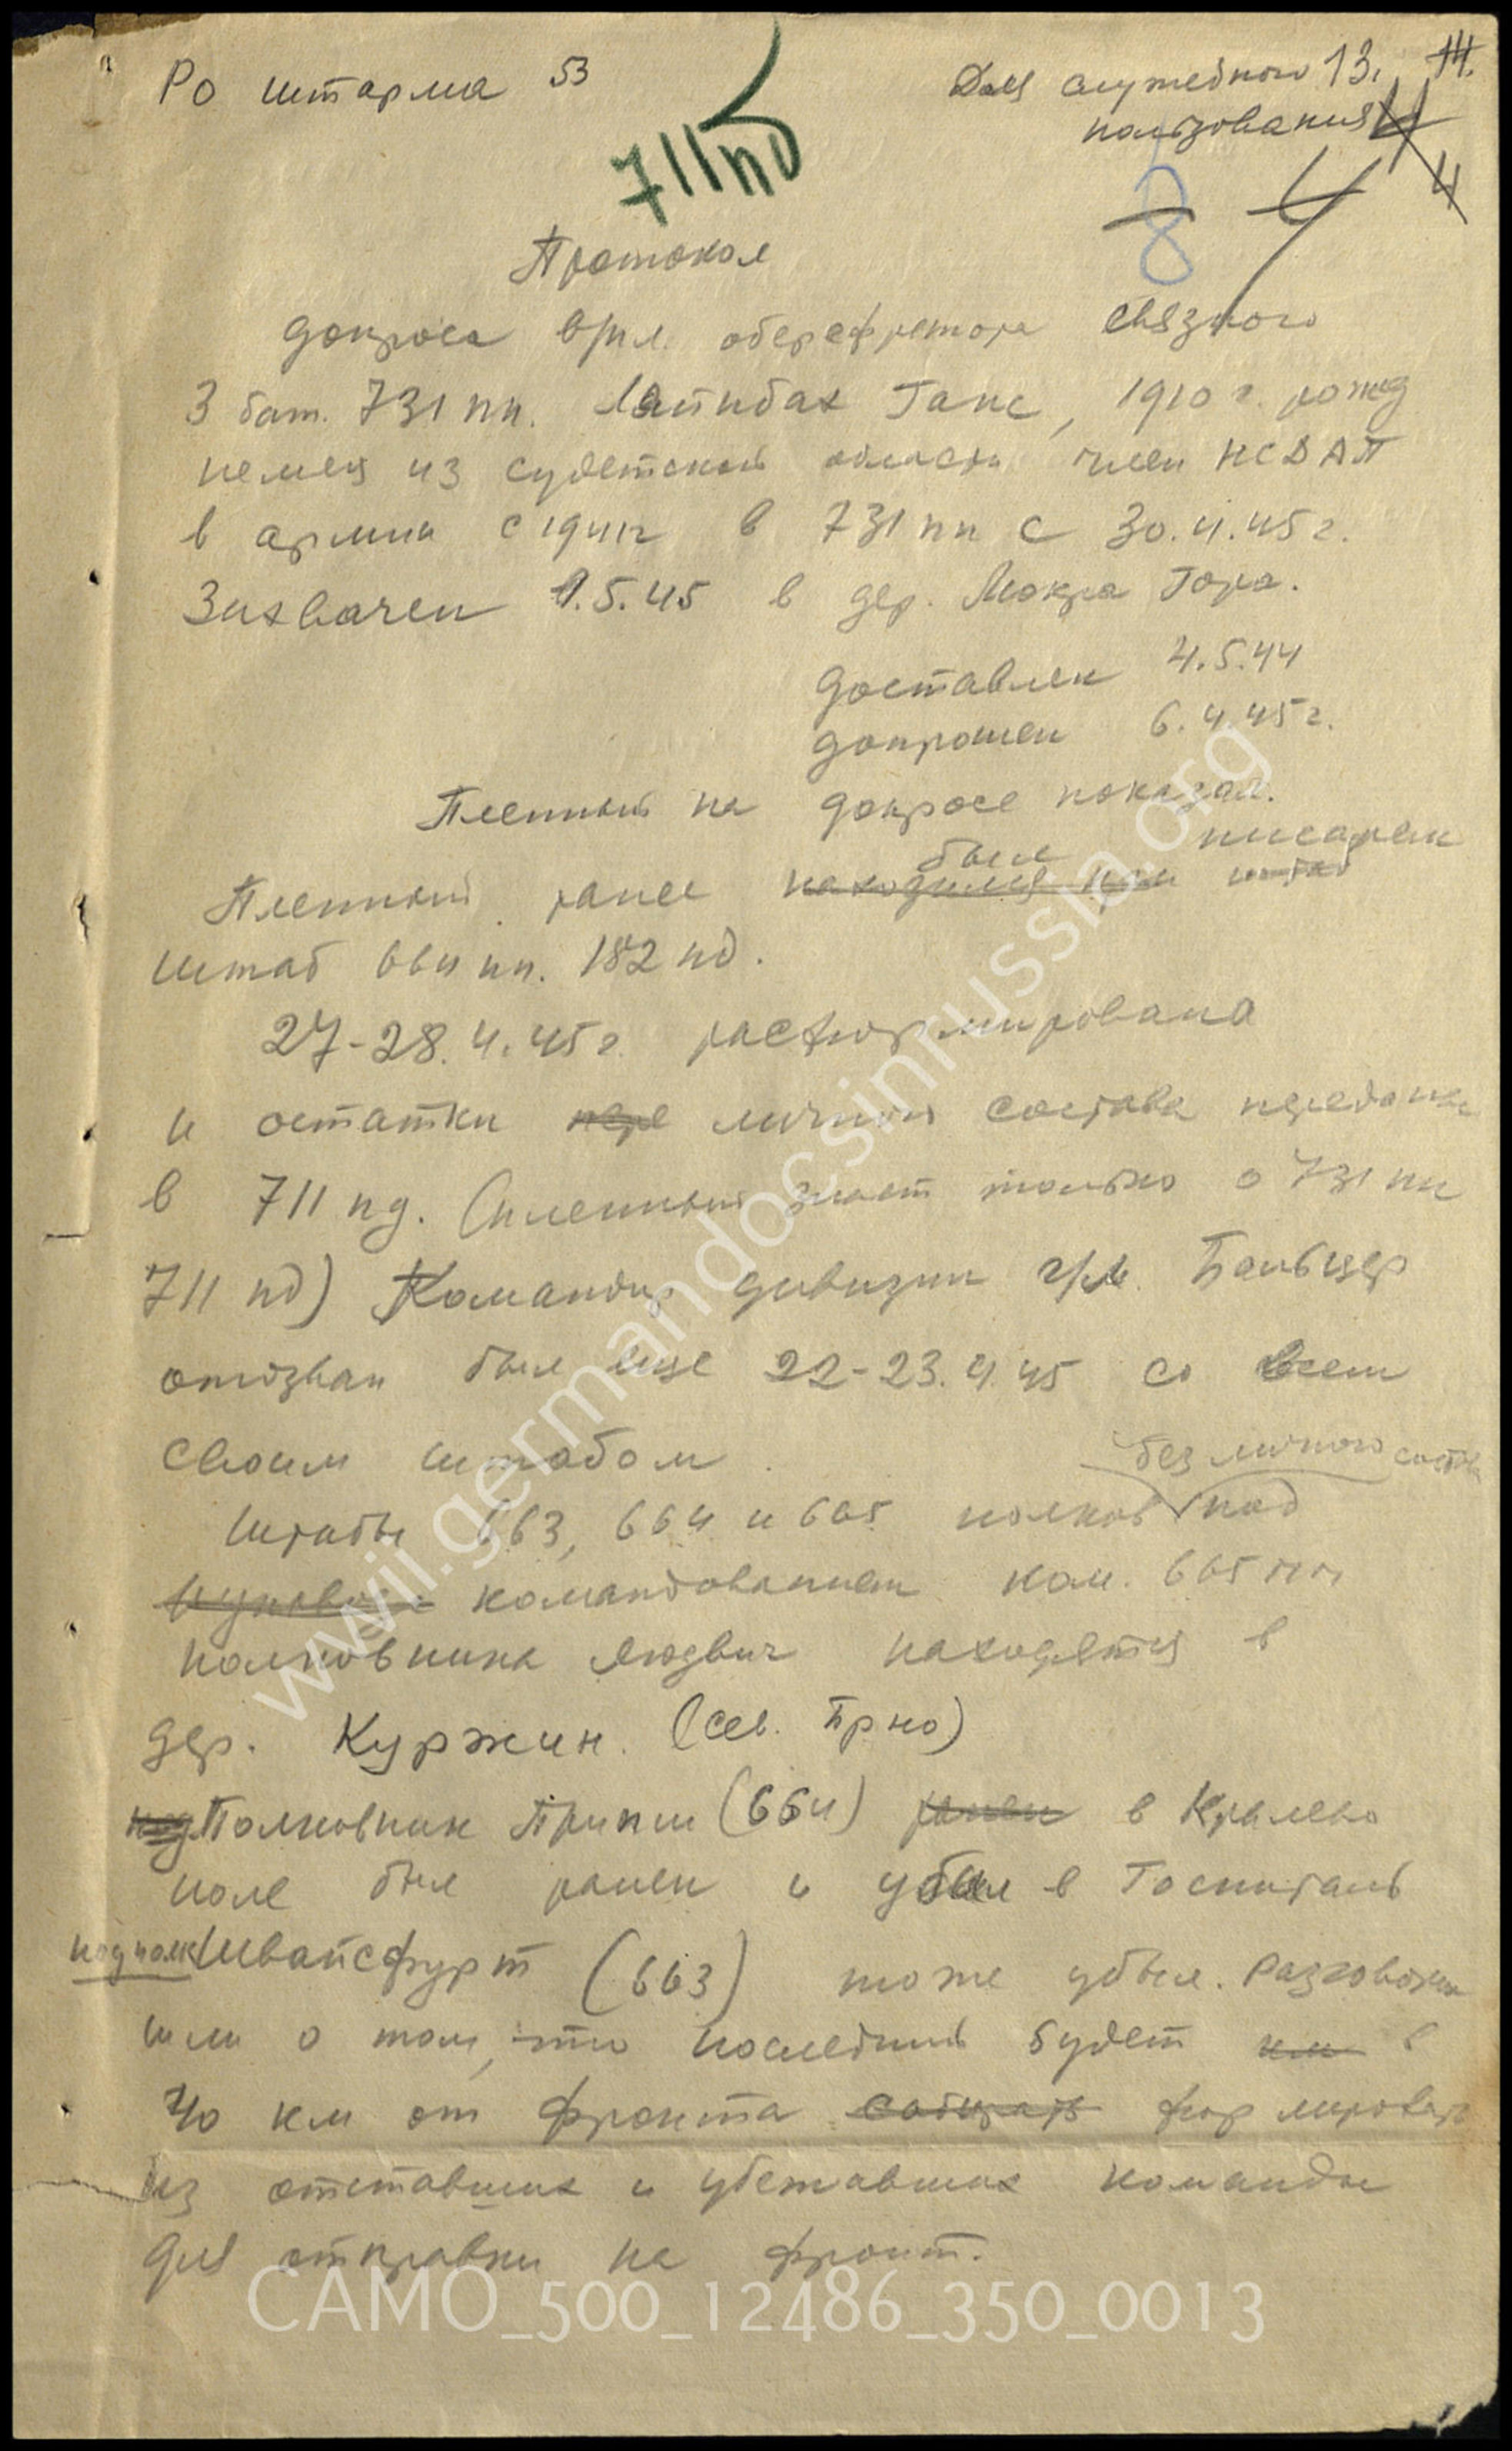 РО штарма 53
Для служебного 13. 14.
пользования
711 пд
8 4 4
Протокол
допроса в/пл. оберефретора связного
3 бат. 731 пп. Ганс, 1910 г. рожд
немец из судетской области член НСДАП
в армии с 1941г в 731 пп с 30.4.45 г.
Захвачен 1.5.45 в дер. Мокра Гора.
доставлен 4.5.44
допрошен 6.4.45 г.
Пленный на допросе показал.
был писарем
Пленный ранее находился при штаб
штаб 664 пп. 182 пд.
27-28.4.45 г. расформирована
и остатки пере личного состава переданы
в 711 пд. (пленный знает только о 731 пп
711 пд) Командир дивизии г/м. Бальцер
отозван был еще 22-23.4.45 со всем
своим штабом.
без личного состава
Штабы 663, 664 и 665 полков под
командованием ком. 665 пп
полковника Людвиг находятся в
дер. Куржим. (сев. Брно)
под Полковник Припш (664) ранен в Кралево
поле был ранен и убыл в Госпиталь
подполк Швайсфурт (663) тоже убыл. Разговоры
шли о том, что последний будет км в
40 км от фронта собирать формировать
из отставших и убежавших команды
для отправки на фронт.
www.germandocsinrussia.org
CAMO_500_12486_350_0013